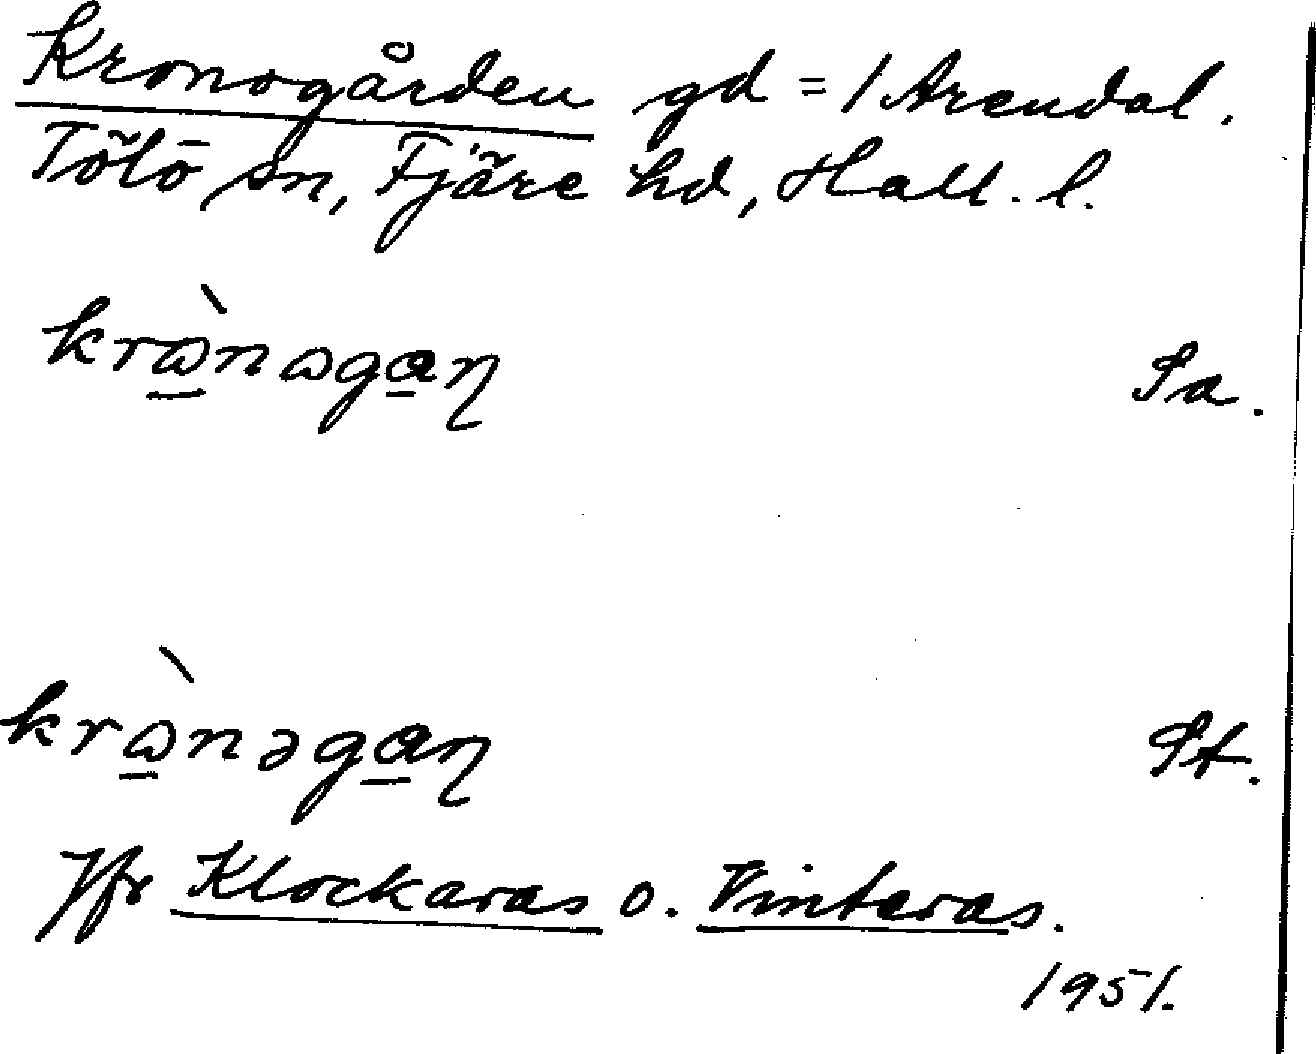 Kronogården gd = 1 Arendal.
Tölö sn, Fjäre hd, Hall. l.
krꞷ̲̀nꞷga̲ɳ Sa.
krꞷ̲̀nəga̲ɳ St.
Jfr Klockaras o. Vinteras.
1951.